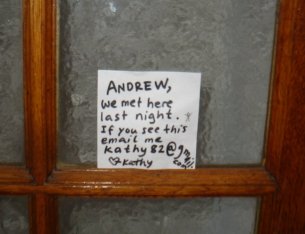 ANDREW,
we met here
last night.
If you see this
email me
kathy82@gmail.com
♡ Kathy